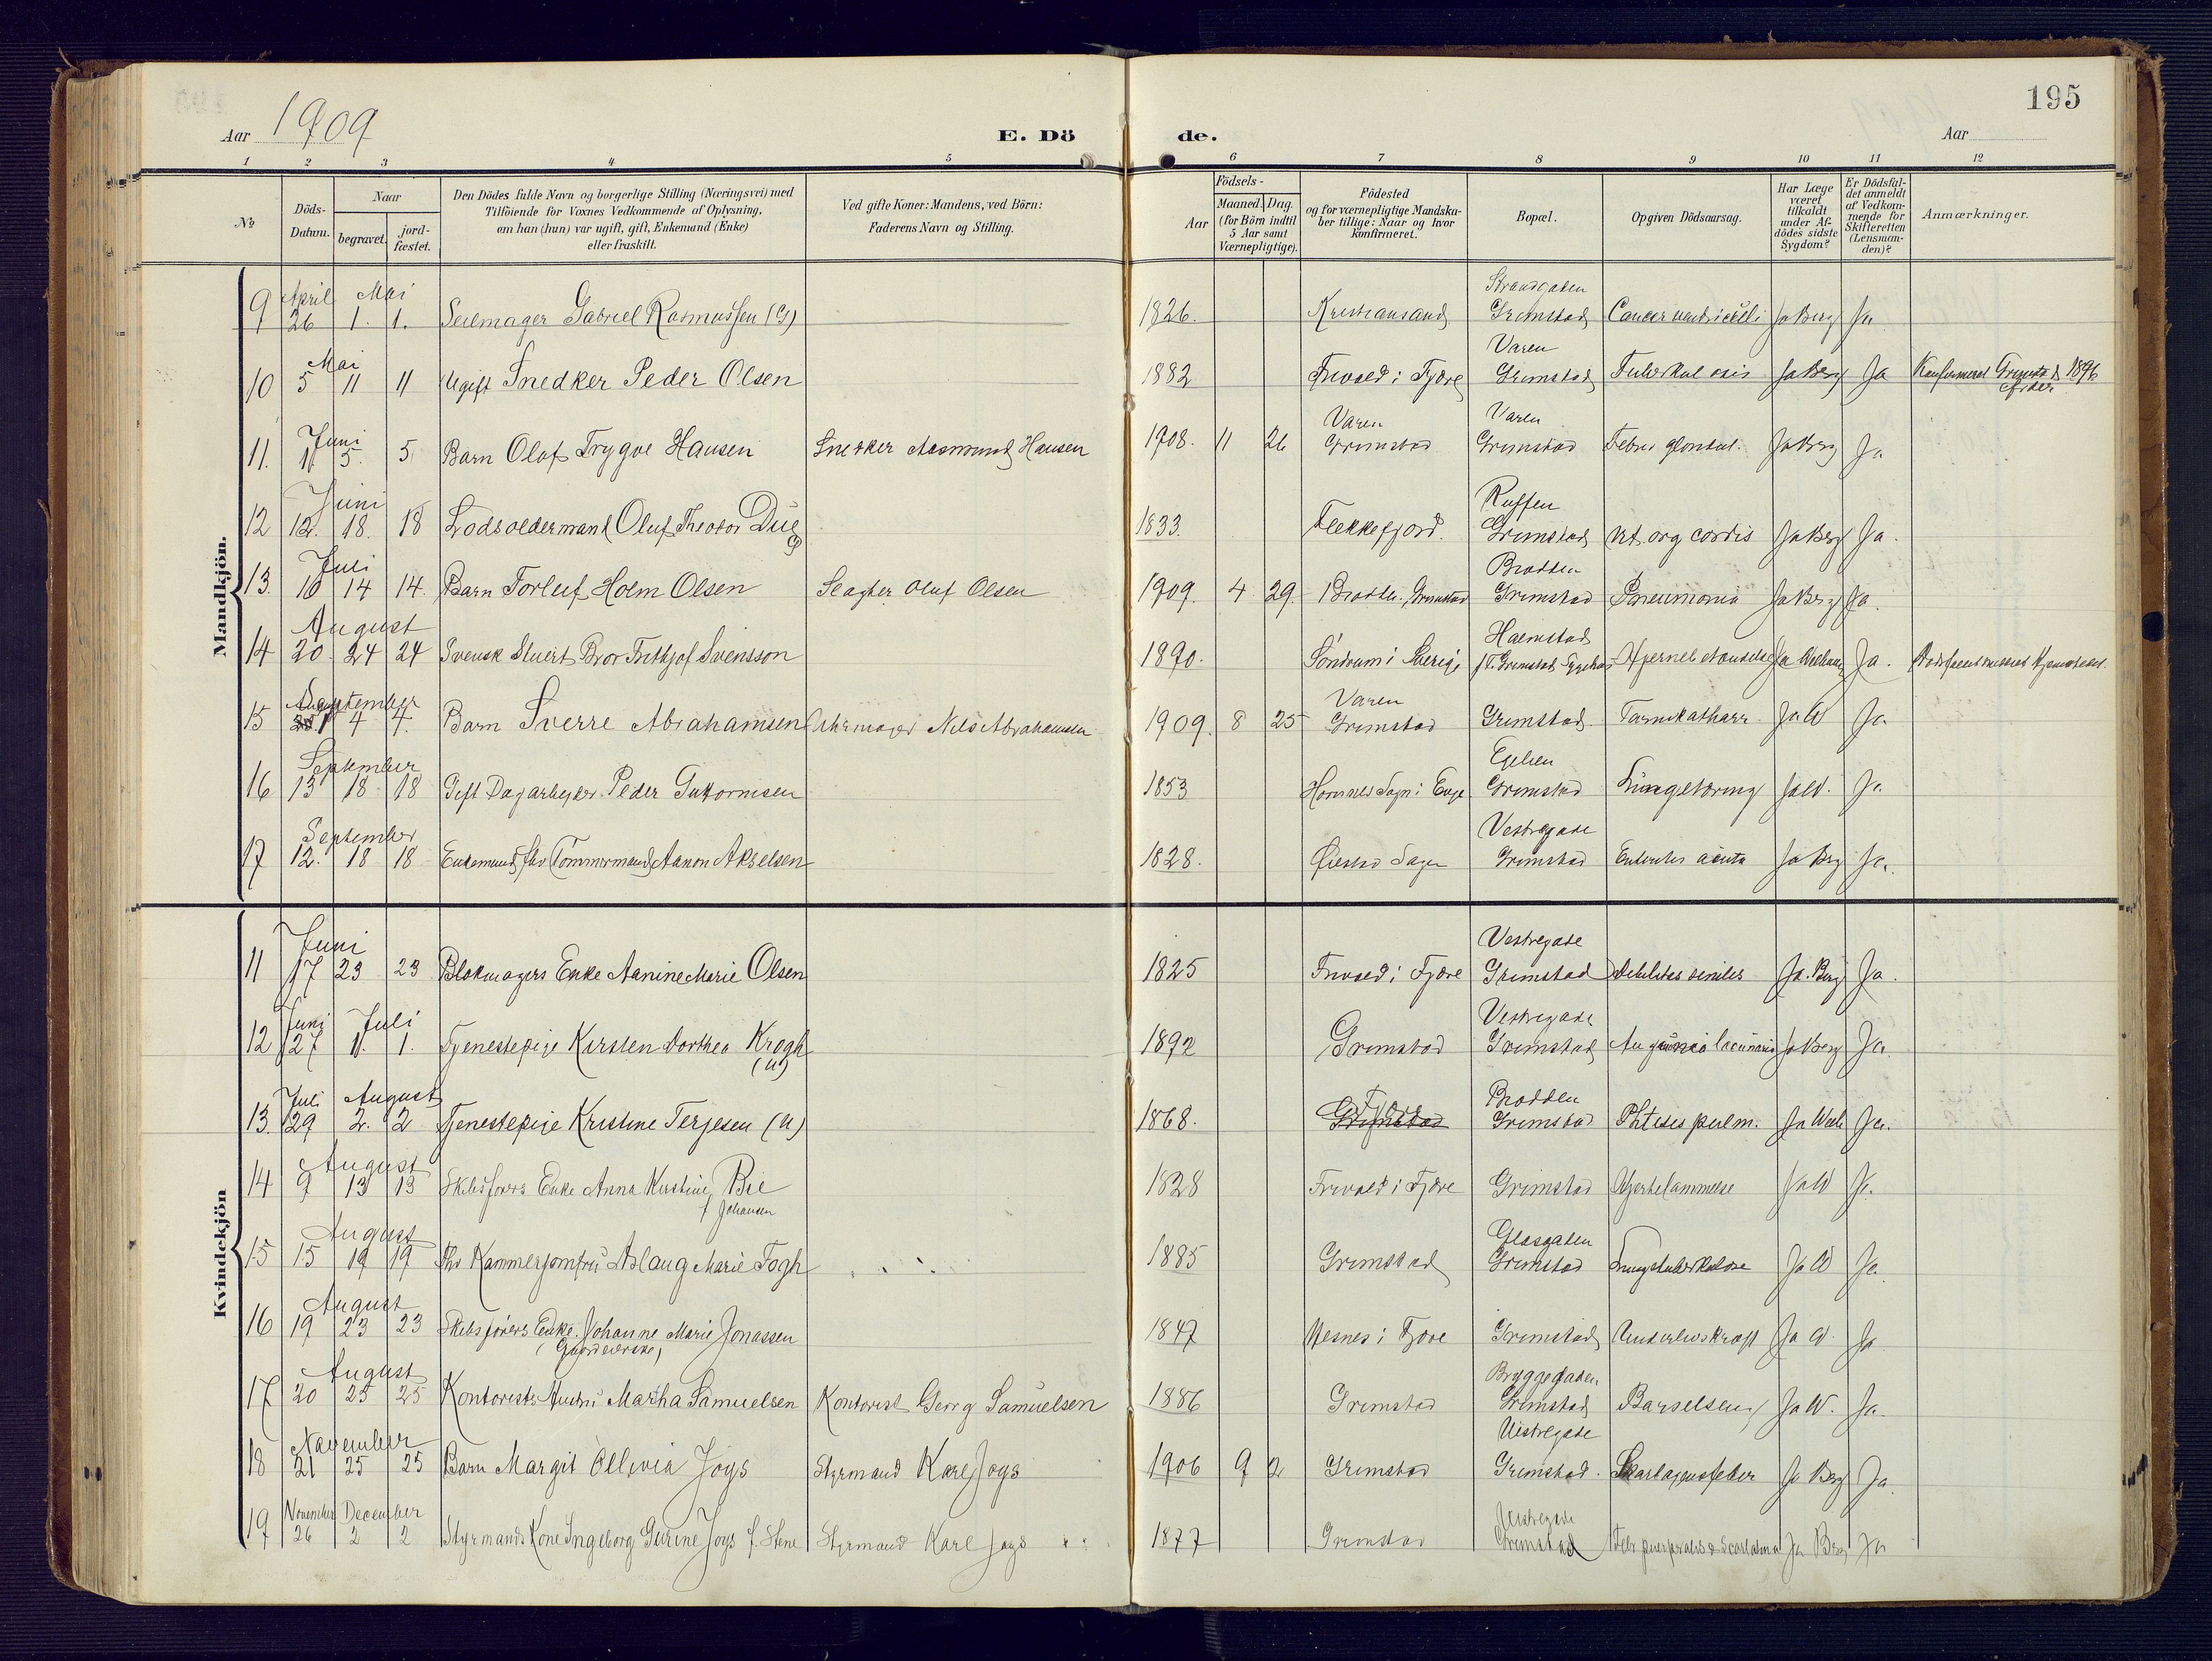 195
Aar 1909
E. Döde.
Aar
1 2 3 4 5 6 7 8 9 10 11 12
№
Döds-Datum.
Naar
begravet.
jord-fæstet.
Den Dödes fulde Navn og borgerlige Stilling (Næringsvei) med
Tilföiende for Voxnes Vedkommende af Oplysning,
om han (hun) var ugift, gift, Enkemand (Enke)
eller fraskilt.
Ved gifte Koner: Mandens, ved Börn:
Faderens Navn og Stilling.
Födsels-
Aar
Maaned. Dag.
(for Börn indtil
5 Aar samt
Værnepligtige).
Födested
og for værnepligtige Mandska-
ber tillige: Naar og hvor
konfirmeret.
Bopæl.
Opgiven Dödsaarsag.
Har Læge
været
tilkaldt
under Af-
dödes sidste
Sygdom?
Er Dödsfal-
det anmeldt
af Vedkom-
mende for
Skifteretten
(Lensman-
den)?
Anmærkninger.
Mandkjön.
April Mai Strandgaden
9 26 1. 1. Seilmager Gabriel Rasmussen (G) 1826. Kristiansand Grimstad Cancer ventriculi Ja Berg Ja
Mai Varen
10 5 11 11 Ugift Snedker Peder Olsen 1882 Frivold i Fjære Grimstad Tuberkulosis Ja Berg Ja Konfirmeret Grimstad 1896
Juni Varen Varen
11. 1 5. 5 Barn Olaf Trygve Hansen Snedker Aasmund Hansen 1908. 11 26 Grimstad Grimstad Febris Ja Berg Ja
Juni
12 12. 18. 18 Lodsoldermand Oluf Theodor Due G 1833. Flekkefjord. Grimstad Vit. org cordis Ja Berg Ja.
Juli Brodden
13. 10 14 14. Barn Torleif Holm Olsen Slagter Oluf Olsen 1909. 4 29. Brodden, Grimstad Grimstad Pneumonia Ja Berg Ja.
August Halmstad
14 20. 24 24 Svensk Stuert Bror Fritkjof Svensson 1890. Söndrum i Sverige Ja Ja.
September Varen
15 1 4 4. Barn Sverre Abrahamsen Uhrmager Nils Abrahamsen 1909. 8 25 Grimstad Grimstad Tarmkatharr Ja W Ja
September
16 13 18 18 Gift Dagarbeider Peder Guttormsen 1853 Hornnes Sogn i Evje Grimstad Lungetæring Ja W. Ja
September Vestregade
17 12. 18 18 Enkemand fhv Tømmermand Aanon Akselsen 1828. Øiestad Sogn Grimstad acuta Ja Berg Ja.
Kvindekjön
Juni Vestregade
11 17 23 23 Blokmagers Enke Aanine Marie Olsen 1825 Frivold i Fjære Grimstad Debilitas senilis Ja. Berg Ja.
Juni Juli Vestregade
12 27 1. 1. Tjenestepige Kirsten Dorthea Krogh (U) 1892 Grimstad Grimstad Angina lacunaris Ja Berg Ja.
Juli August Brodden
13. 29 2. 2 Tjenestepige Kristine Terjesen (U) 1868. Fjære Grimstad Phtisis pulm. Ja Ja.
August
14 9 13 13 Skibsførers Enke Anna Kirstine Bie 1828 Frivold i Fjære Grimstad Hjertelammelse Ja W Ja.
f Johansen
August
15 15 19 19 fhv Kammerjomfru Aslaug Marie Fogh 1885 Grimstad Grimstad Lungetuberkulose Ja W Ja
August
16 19 23 23 Skibsførers Enke. Johanne Marie Jonassen 1847 Vesnes i Fjære Grimstad Underlivskræft Ja W. Ja
August Bryggegaden
17 20 25 25 Kontorists Hustru Martha Samuelsen Kontorist Georg Samuelsen 1886 Grimstad Grimstad Barselseng Ja W. Ja.
November Vestregade
18 21 25 25 Barn Margit Ollivia Joys Styrmand Karl Joys 1906 9 2 Grimstad Grimstad. Skarlagensfeber Ja Berg Ja.
November December Vestregade
19 26 2 2 Styrmands Kone Ingeborg Gurine Joys f. Stene Styrmand Karl Joys 1877 Grimstad Grimstad Febr puerperalis & Scarlatina Ja Berg Ja